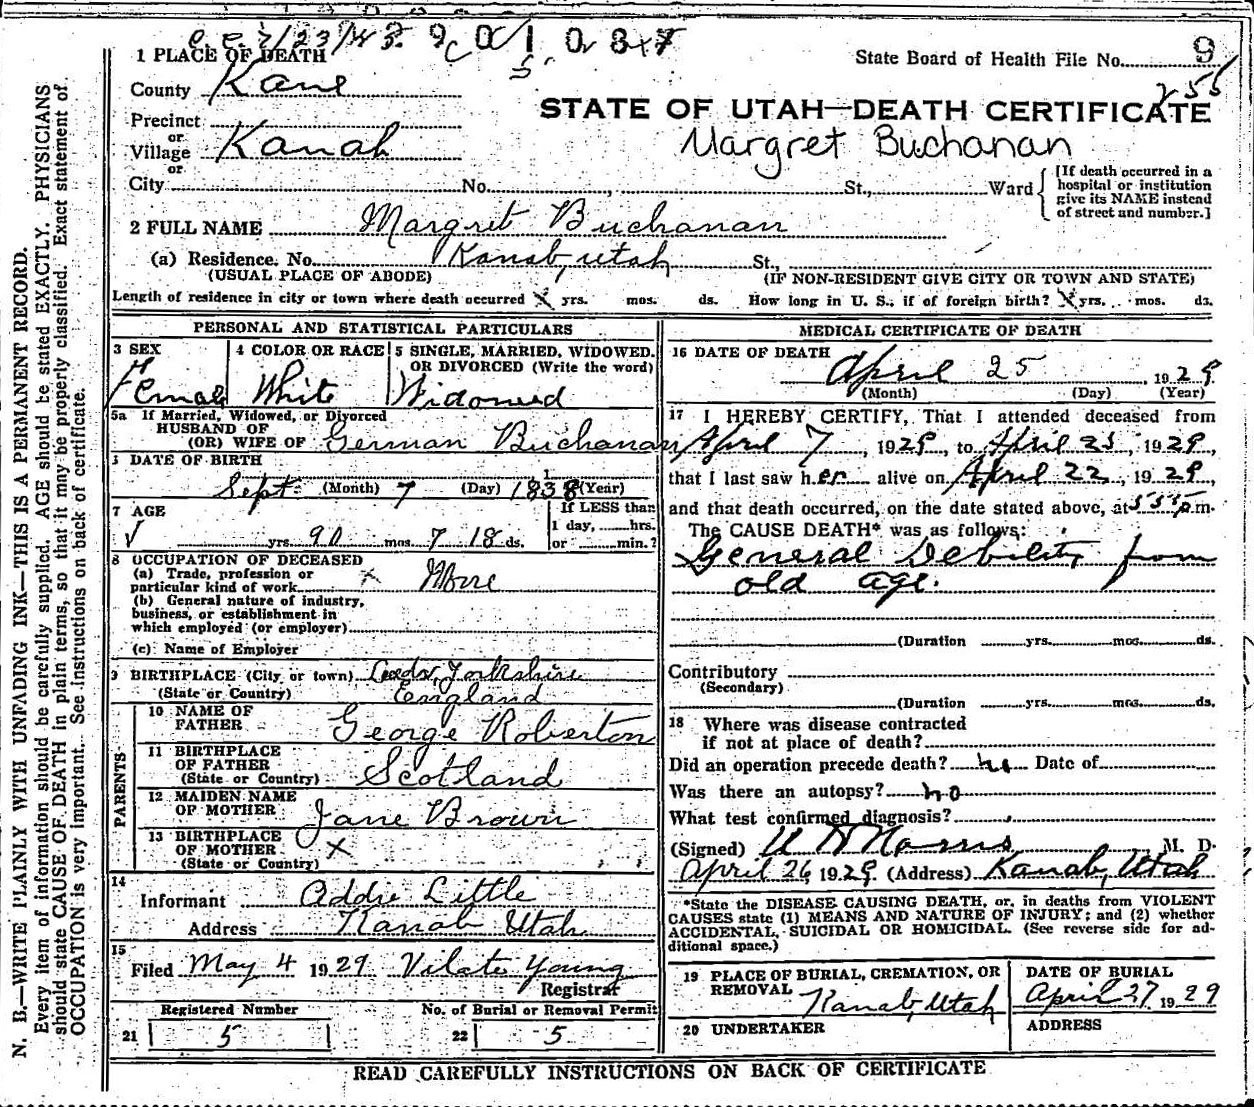 1 PLACE OF DEATH
State Board of Health File No. 9
255
County Kane
STATE OF UTAH—DEATH CERTIFICATE
Precinct
or
Village Kanab
Margret Buchanan
or
City No. , St., Ward
[If death occurred in a hospital or institution give its NAME instead of street and number.]
2 FULL NAME Margret Buchanan
(a) Residence. No. Kanab, Utah St.,
(USUAL PLACE OF ABODE) (IF NON-RESIDENT GIVE CITY OR TOWN AND STATE)
Length of residence in city or town where death occurred X yrs. mos. ds. How long in U. S., if of foreign birth? X yrs. mos. ds.
PERSONAL AND STATISTICAL PARTICULARS
3 SEX
Female
4 COLOR OR RACE
White
5 SINGLE, MARRIED, WIDOWED, OR DIVORCED (Write the word)
Widowed
5a If Married, Widowed, or Divorced
HUSBAND OF
(OR) WIFE OF German Buchanan
DATE OF BIRTH
Sept. (Month) 7 (Day) 1838 (Year)
7 AGE
yrs. 90 mos. 7 18 ds.
If LESS than
1 day, hrs.
or min.?
8 OCCUPATION OF DECEASED
(a) Trade, profession or
particular kind of work X
(b) General nature of industry,
business, or establishment in
which employed (or employer)
(c) Name of Employer
9 BIRTHPLACE (City or town) Leeds, Yorkshire
(State or Country) England
PARENTS
10 NAME OF
FATHER George Roberton
11 BIRTHPLACE
OF FATHER
(State or Country) Scotland
12 MAIDEN NAME
OF MOTHER Jane Brown
13 BIRTHPLACE
OF MOTHER X
(State or Country)
14
Informant Addie Little
Address Kanab Utah
15
Filed May 4 1929 Vilate Young
Registrar
Registered Number
21 5
No. of Burial or Removal Permit
22 5
MEDICAL CERTIFICATE OF DEATH
16 DATE OF DEATH
April 25, 1929
(Month) (Day) (Year)
17 I HEREBY CERTIFY, That I attended deceased from
April 7, 1929, to April 25, 1929,
that I last saw her alive on April 22, 1929,
and that death occurred, on the date stated above, at p.m.
The CAUSE DEATH* was as follows:
General Debility from
old age.
(Duration yrs. mos. ds.
Contributory
(Secondary)
(Duration yrs. mos. ds.
18 Where was disease contracted
if not at place of death?
Did an operation precede death? no Date of
Was there an autopsy? no
What test confirmed diagnosis?
(Signed) Norris M. D.
April 26, 1929. (Address) Kanab, Utah
*State the DISEASE CAUSING DEATH, or, in deaths from VIOLENT
CAUSES state (1) MEANS AND NATURE OF INJURY; and (2) whether
ACCIDENTAL, SUICIDAL OR HOMICIDAL. (See reverse side for ad-
ditional space.)
19 PLACE OF BURIAL, CREMATION, OR
REMOVAL Kanab, Utah
DATE OF BURIAL
April 27, 1929
20 UNDERTAKER
ADDRESS
READ CAREFULLY INSTRUCTIONS ON BACK OF CERTIFICATE
N. B.—WRITE PLAINLY WITH UNFADING INK—THIS IS A PERMANENT RECORD.
Every item of information should be carefully supplied. AGE should be stated EXACTLY. PHYSICIANS
should state CAUSE OF DEATH in plain terms, so that it may be properly classified. Exact statement of
OCCUPATION is very important. See instructions on back of certificate.